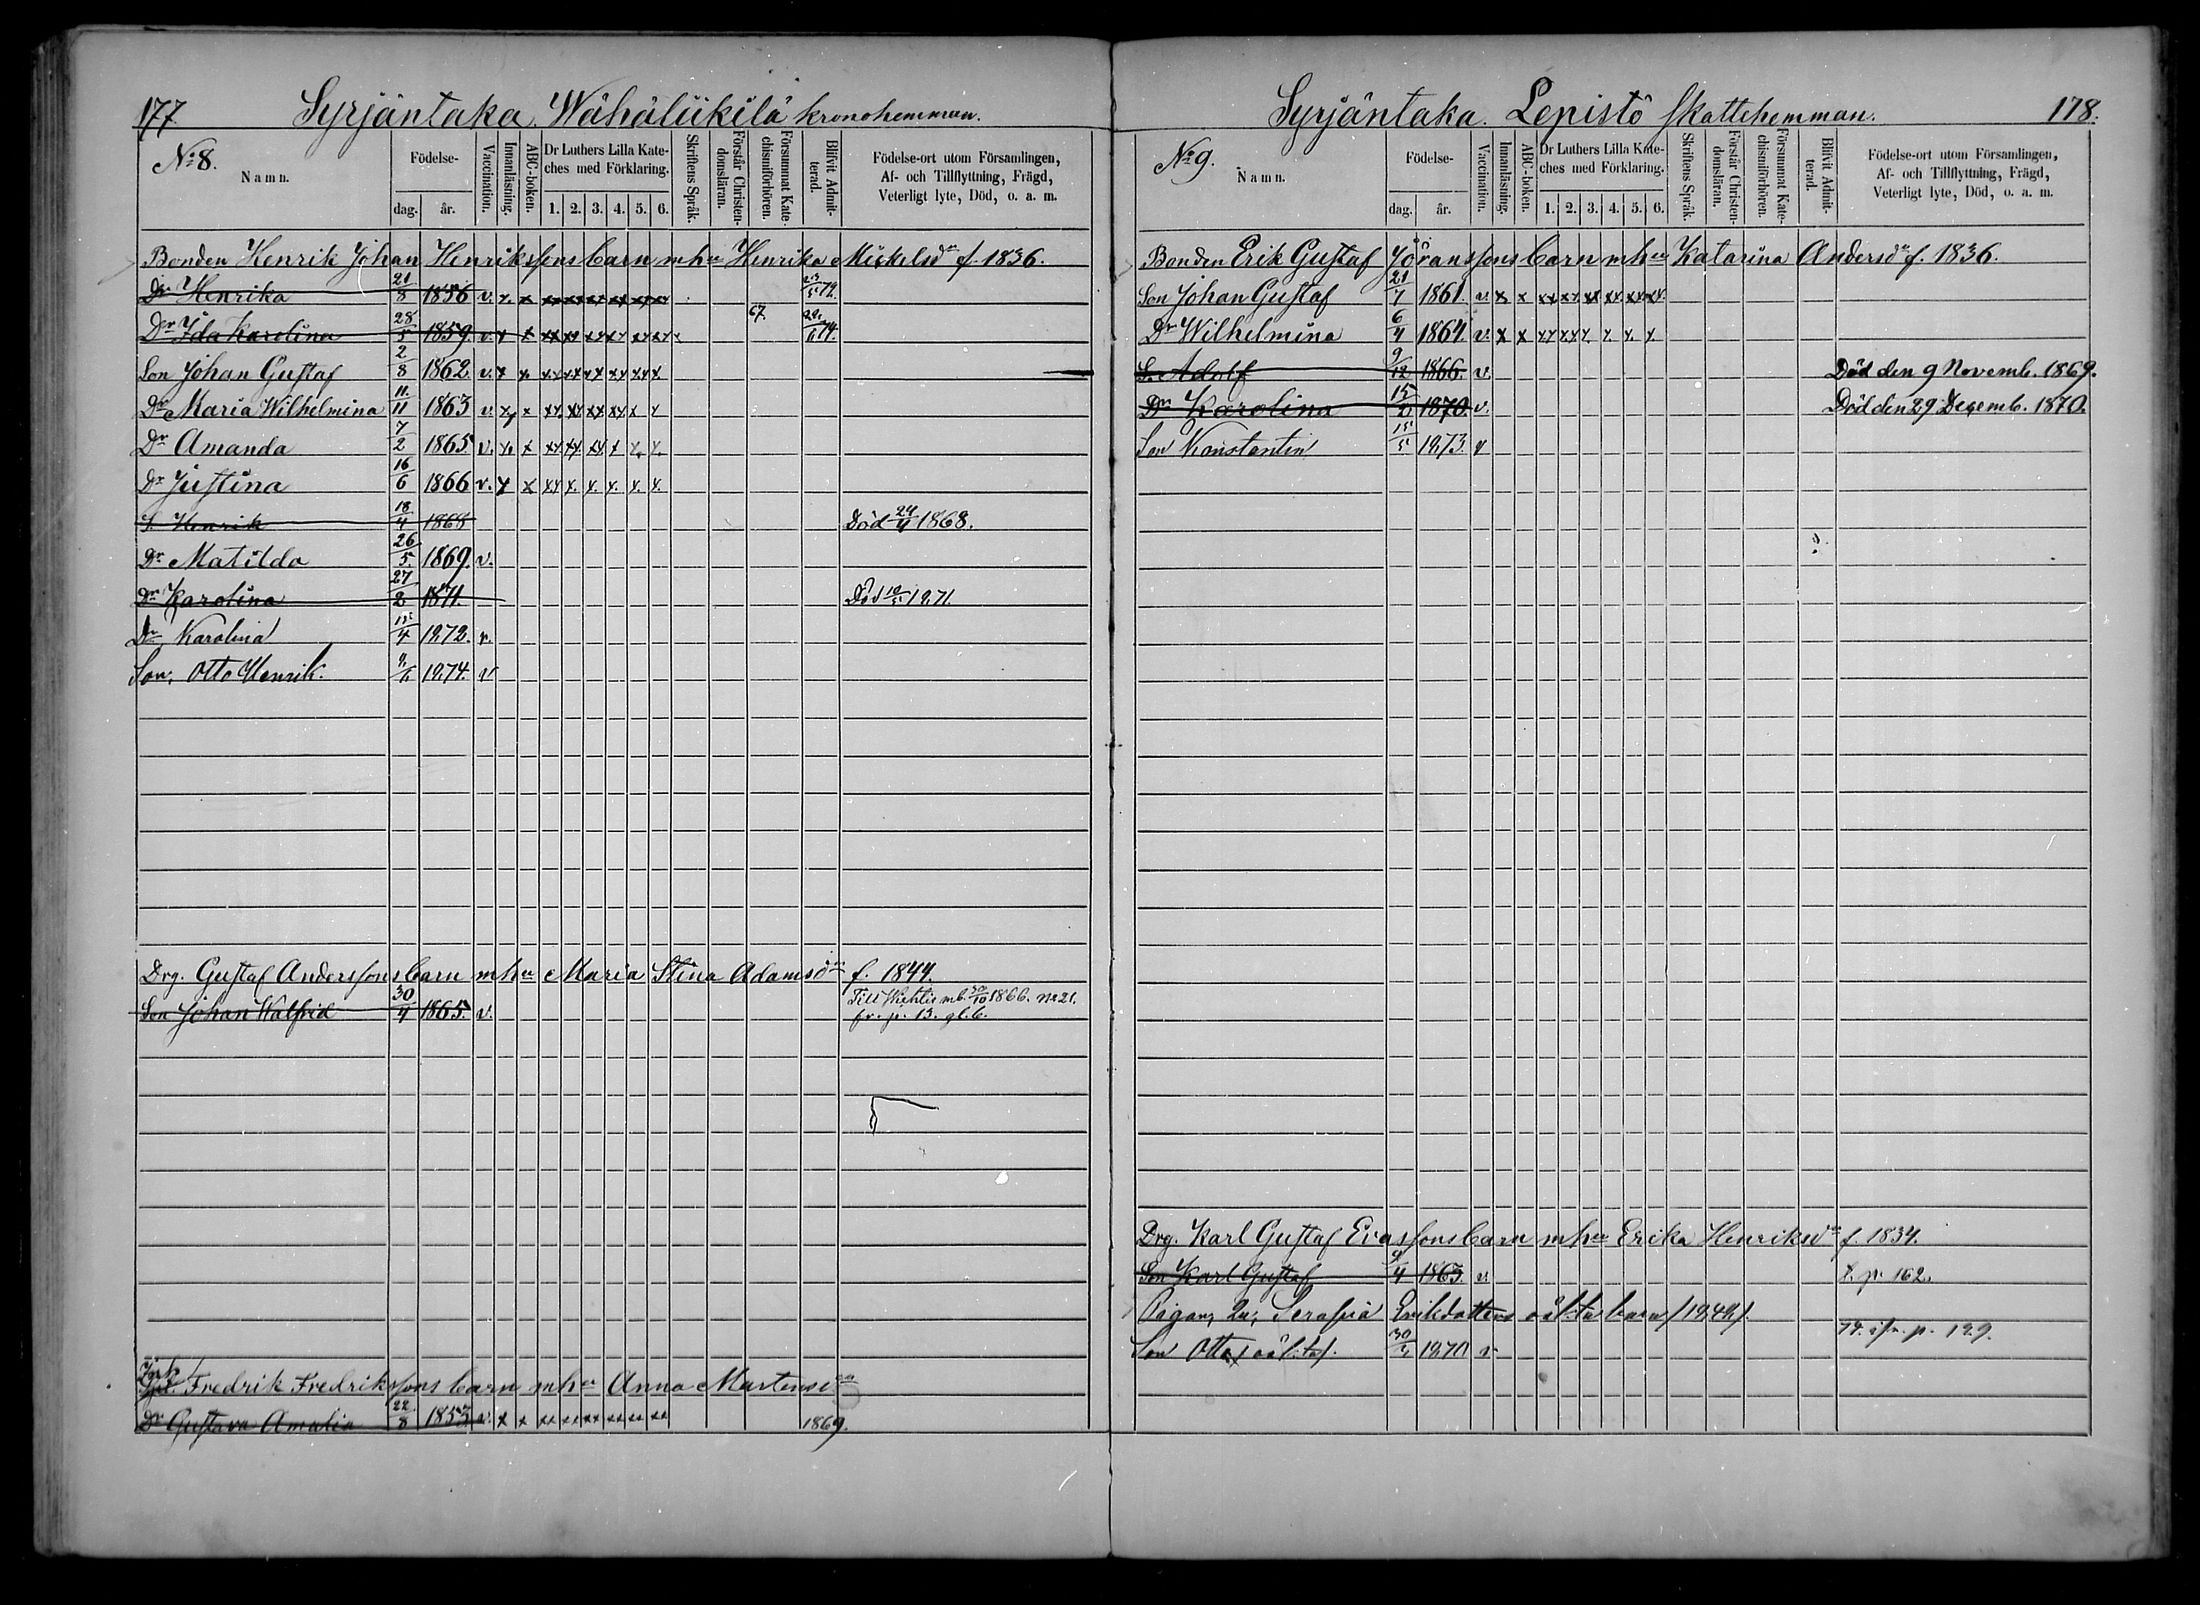 177 Syrjäntaka. Wähäliikilä kronohemman.
No 8.
Namn.
Födelse-
dag. år.
Vaccination.
Innanläsning.
ABC-boken.
Dr Luthers Lilla Kateches med Förklaring.
1. 2. 3. 4. 5. 6.
Skriftens Språk.
Förstår Christendomsläran.
Försummat Katechismiförhören.
Blifvit Admitterad.
Födelse-ort utom Församlingen,
Af- och Tillflyttning, Frägd,
Veterligt lyte, Död, o. a. m.
Bonden Henrik Johan Henrikssons barn m hu Henrika Mickelsdr f. 1836.
Dr Henrika 21/8 1856 v. x. x xx xx xx xx xx xx 23/5 72.
Dr Ida Karolina 28/5 1859. v. x x xx xx xx xx xx xx 67. 74.
Son Johan Gustaf 2/8 1862. v. x x. xx xx xx xx xx x.
Dr Maria Wilhelmina 11/11 1863 v. x x xx. xx xx xx x x
Dr Amanda 7/2 1865 v. x. x xx xx. xx. x x. x.
Dr Justina 16/6 1866 v. x x xx x. x. x. x. x.
S. Henrik 18/4 1868 Död 29/4 1868.
Dr Matilda 26/5. 1869. v.
Dr Karolina 27/2 1871. Död 1871.
Dr Karolina 15/4 1872. v.
Son, Otto Henrik. 1874. v
Drg. Gustaf Anderssons barn m hu Maria Stina Adamsdr f. 1844.
Son Johan Walfrid 30/4 1865. v. Till Wichtis mb. 30/10 1866. No 21.
fr. p. 13. gl. b.
Fredrik Fredrikssons barn m hu Anna Martensdr
Dr Gustava Amalia 22/8 1853. v. x x xx xx xx xx xx xx 1869.
Syrjäntaka. Lepistö Skattehemman. 178.
No 9.
Namn.
Födelse-
dag. år.
Vaccination.
Innanläsning.
ABC-boken.
Dr Luthers Lilla Kateches med Förklaring.
1. 2. 3. 4. 5. 6.
Skriftens Språk.
Förstår Christendomsläran.
Försummat Katechismiförhören.
Blifvit Admitterad.
Födelse-ort utom Församlingen,
Af- och Tillflyttning, Frägd,
Veterligt lyte, Död, o. a. m.
Bonden Erik Gustaf Göranssons barn m hu Katarina Andersdr f. 1836.
Son Johan Gustaf 21/7 1861. v. x x xx xx. xx xx. xx xx.
Dr Wilhelmina 6/4 1864. v. x x xx xx x. x. x. x.
S. Adolf 9/12 1866. v. Död den 9 Novemb. 1869.
Dr Karolina 15/2 1870. v. Död den 29 Decemb. 1870.
Son Konstantin 15/5 1873. v
Drg. Karl Gustaf Evassons barn m hu Erika Henriksdr f. 1834.
Son Karl Gustaf 9/4 1863. v. S. p. 162.
Pigan, Serafia Eriksdotters oäkta barn /1849/.
Son Otto /oäkta/. 1870 v 74. p. 129.